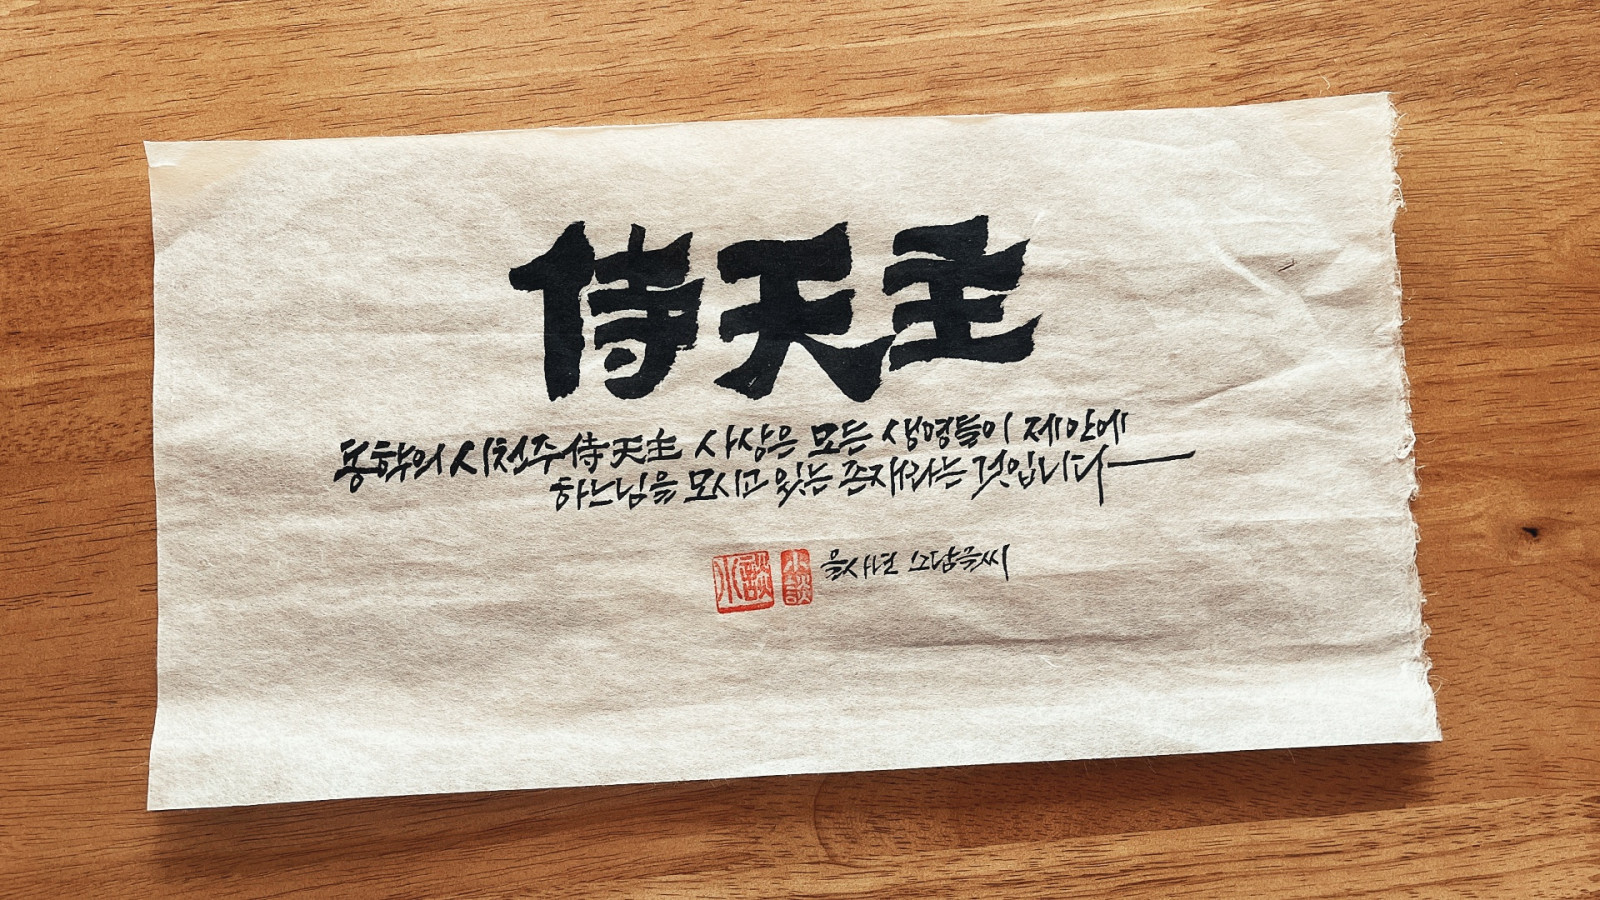 侍天主
동학의 시천주侍天主 사상은 모든 생명들이 제안에
하느님을 모시고 있는 존재라는 것입니다
小談 小談 을사년 소담글씨